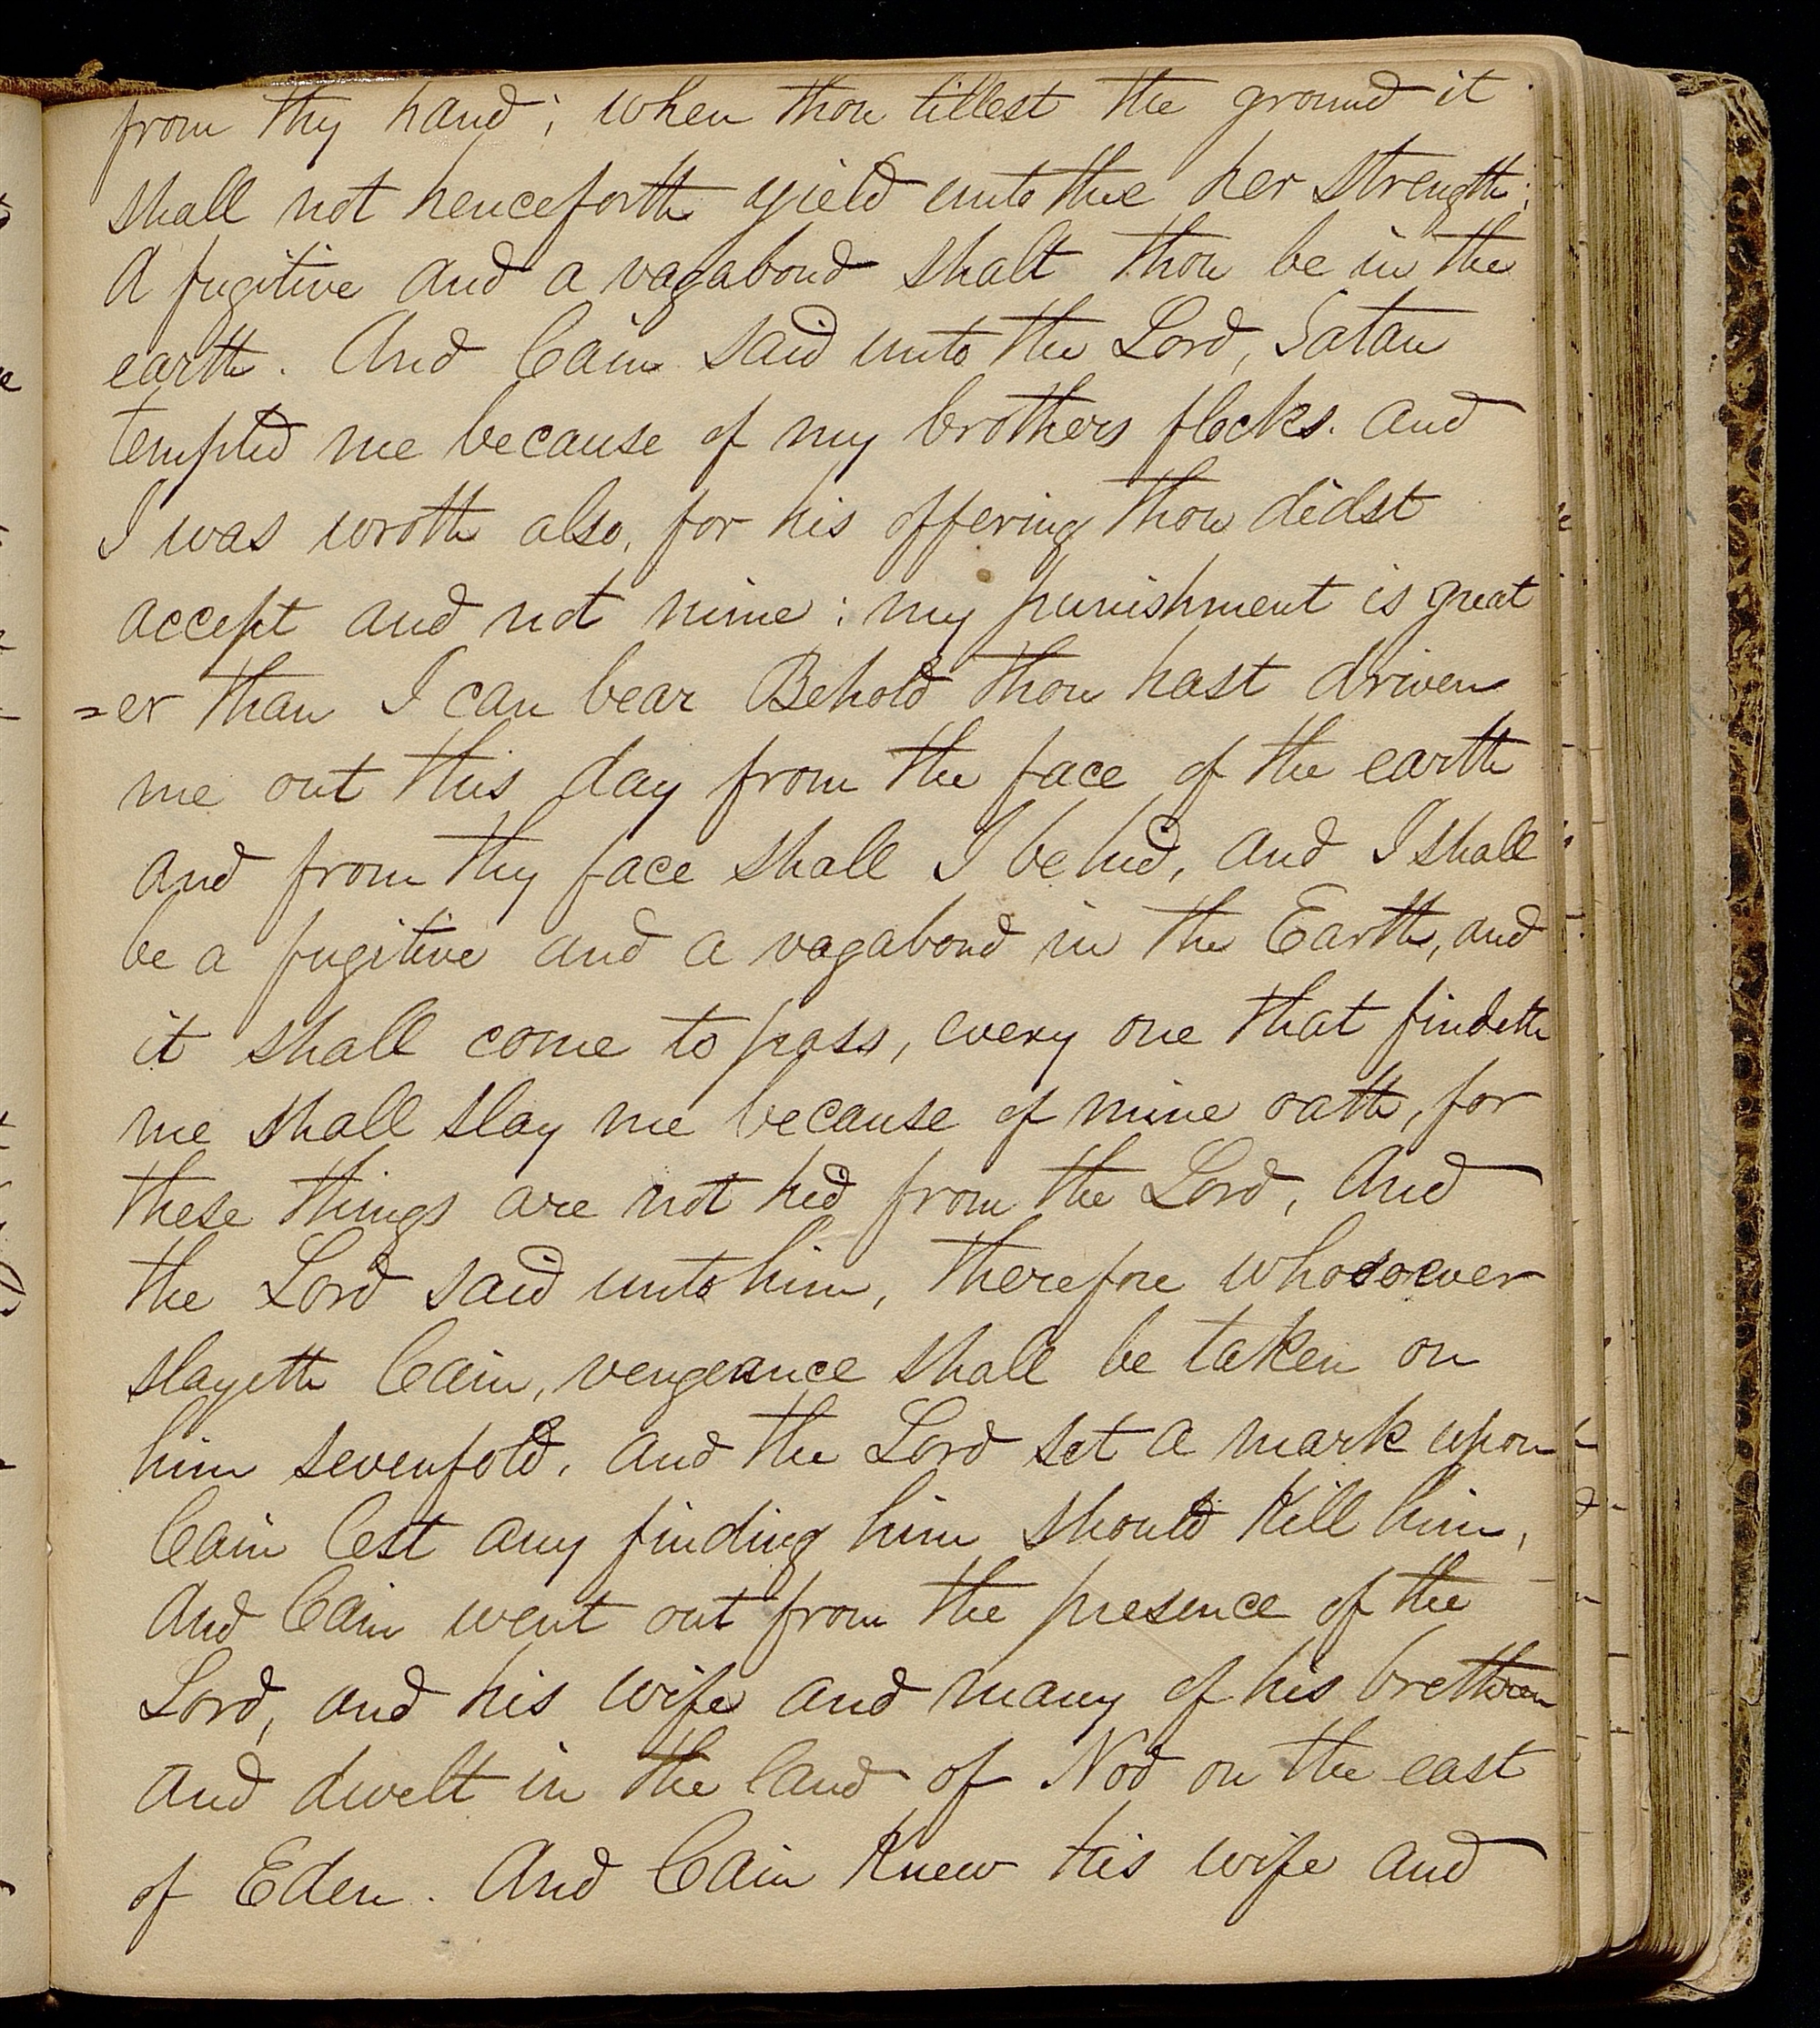 from thy hand; when thou tillest the ground it
shall not henceforth yield unto thee her strength;
A fugitive and a vagabond shalt thou be in the
earth. And Cain said unto the Lord, Satan
tempted me because of my brothers flocks. And
I was wroth also, for his offering thou didst
accept and not mine; my punishment is great
=er than I can bear Behold thou hast driven
me out this day from the face of the earth
and from thy face shall I be hid, and I shall
be a fugitive and a vagabond in the Earth, and
it shall come to pass, every one that findeth
me shall slay me because of mine oath, for
these things are not hid from the Lord, And
the Lord said unto him, therefore whosoever
slayeth Cain, vengeance shall be taken on
him sevenfold, and the Lord set a mark upon
Cain lest any finding him should kill him,
And Cain went out from the presence of the
Lord, and his wife and many of his brethren
and dwelt in the land of Nod on the east
of Eden. And Cain knew his wife and